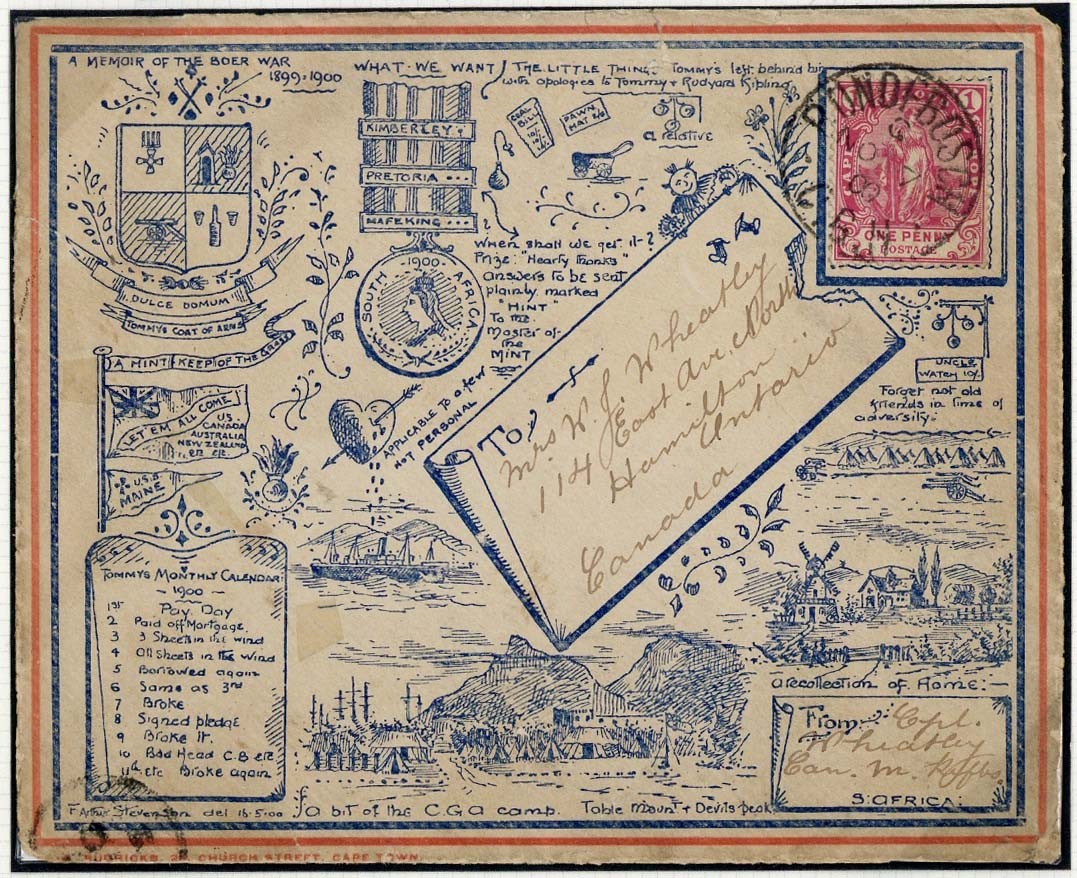 A MEMOIR OF THE BOER WAR
1899-1900
WHAT WE WANT
THE LITTLE THINGS Tommy's left behind him
with apologies to Tommy & Rudyard Kipling
COAL BILL
PAWN
a relative
KIMBERLEY
PRETORIA
MAFEKING
1900
SOUTH AFRICA
When shall we get it?
Prize: "Hearty Thanks"
answers to be sent
plainly marked
"HINT"
To the
Master of
the
MINT
DULCE DOMUM
TOMMYS COAT OF ARMS
A HINT KEEP OF THE GRASS
LET 'EM ALL COME
US
CANADA
AUSTRALIA
NEW ZEALAND
etc etc
U.S.A.
MAINE
APPLICABLE TO a few
NOT PERSONAL
To
Mrs W. J. Wheatley
114 East Ave. North
Hamilton
Ontario
Canada
ONE PENNY
POSTAGE
UNCLE
WATCH 10/-
Forget not old
friends in time of
adversity.
TOMMYS MONTHLY CALENDAR
1900
1st Pay Day
2 Paid off Mortgage
3 3 Sheets in the wind
4 All Sheets in the Wind
5 Borrowed again
6 Same as 3rd
7 Broke
8 Signed pledge
9 Broke it
10 Bad Head C.B etc
11th etc Broke again
a recollection of Home:-
From
Cpl.
Wheatley
Can. M. Rifles
S. AFRICA:
F. Arthur Stevenson del 15.5.00
a bit of the C.G.A camp.
Table Mount & Devils peak
CHURCH STREET, CAPE TOWN